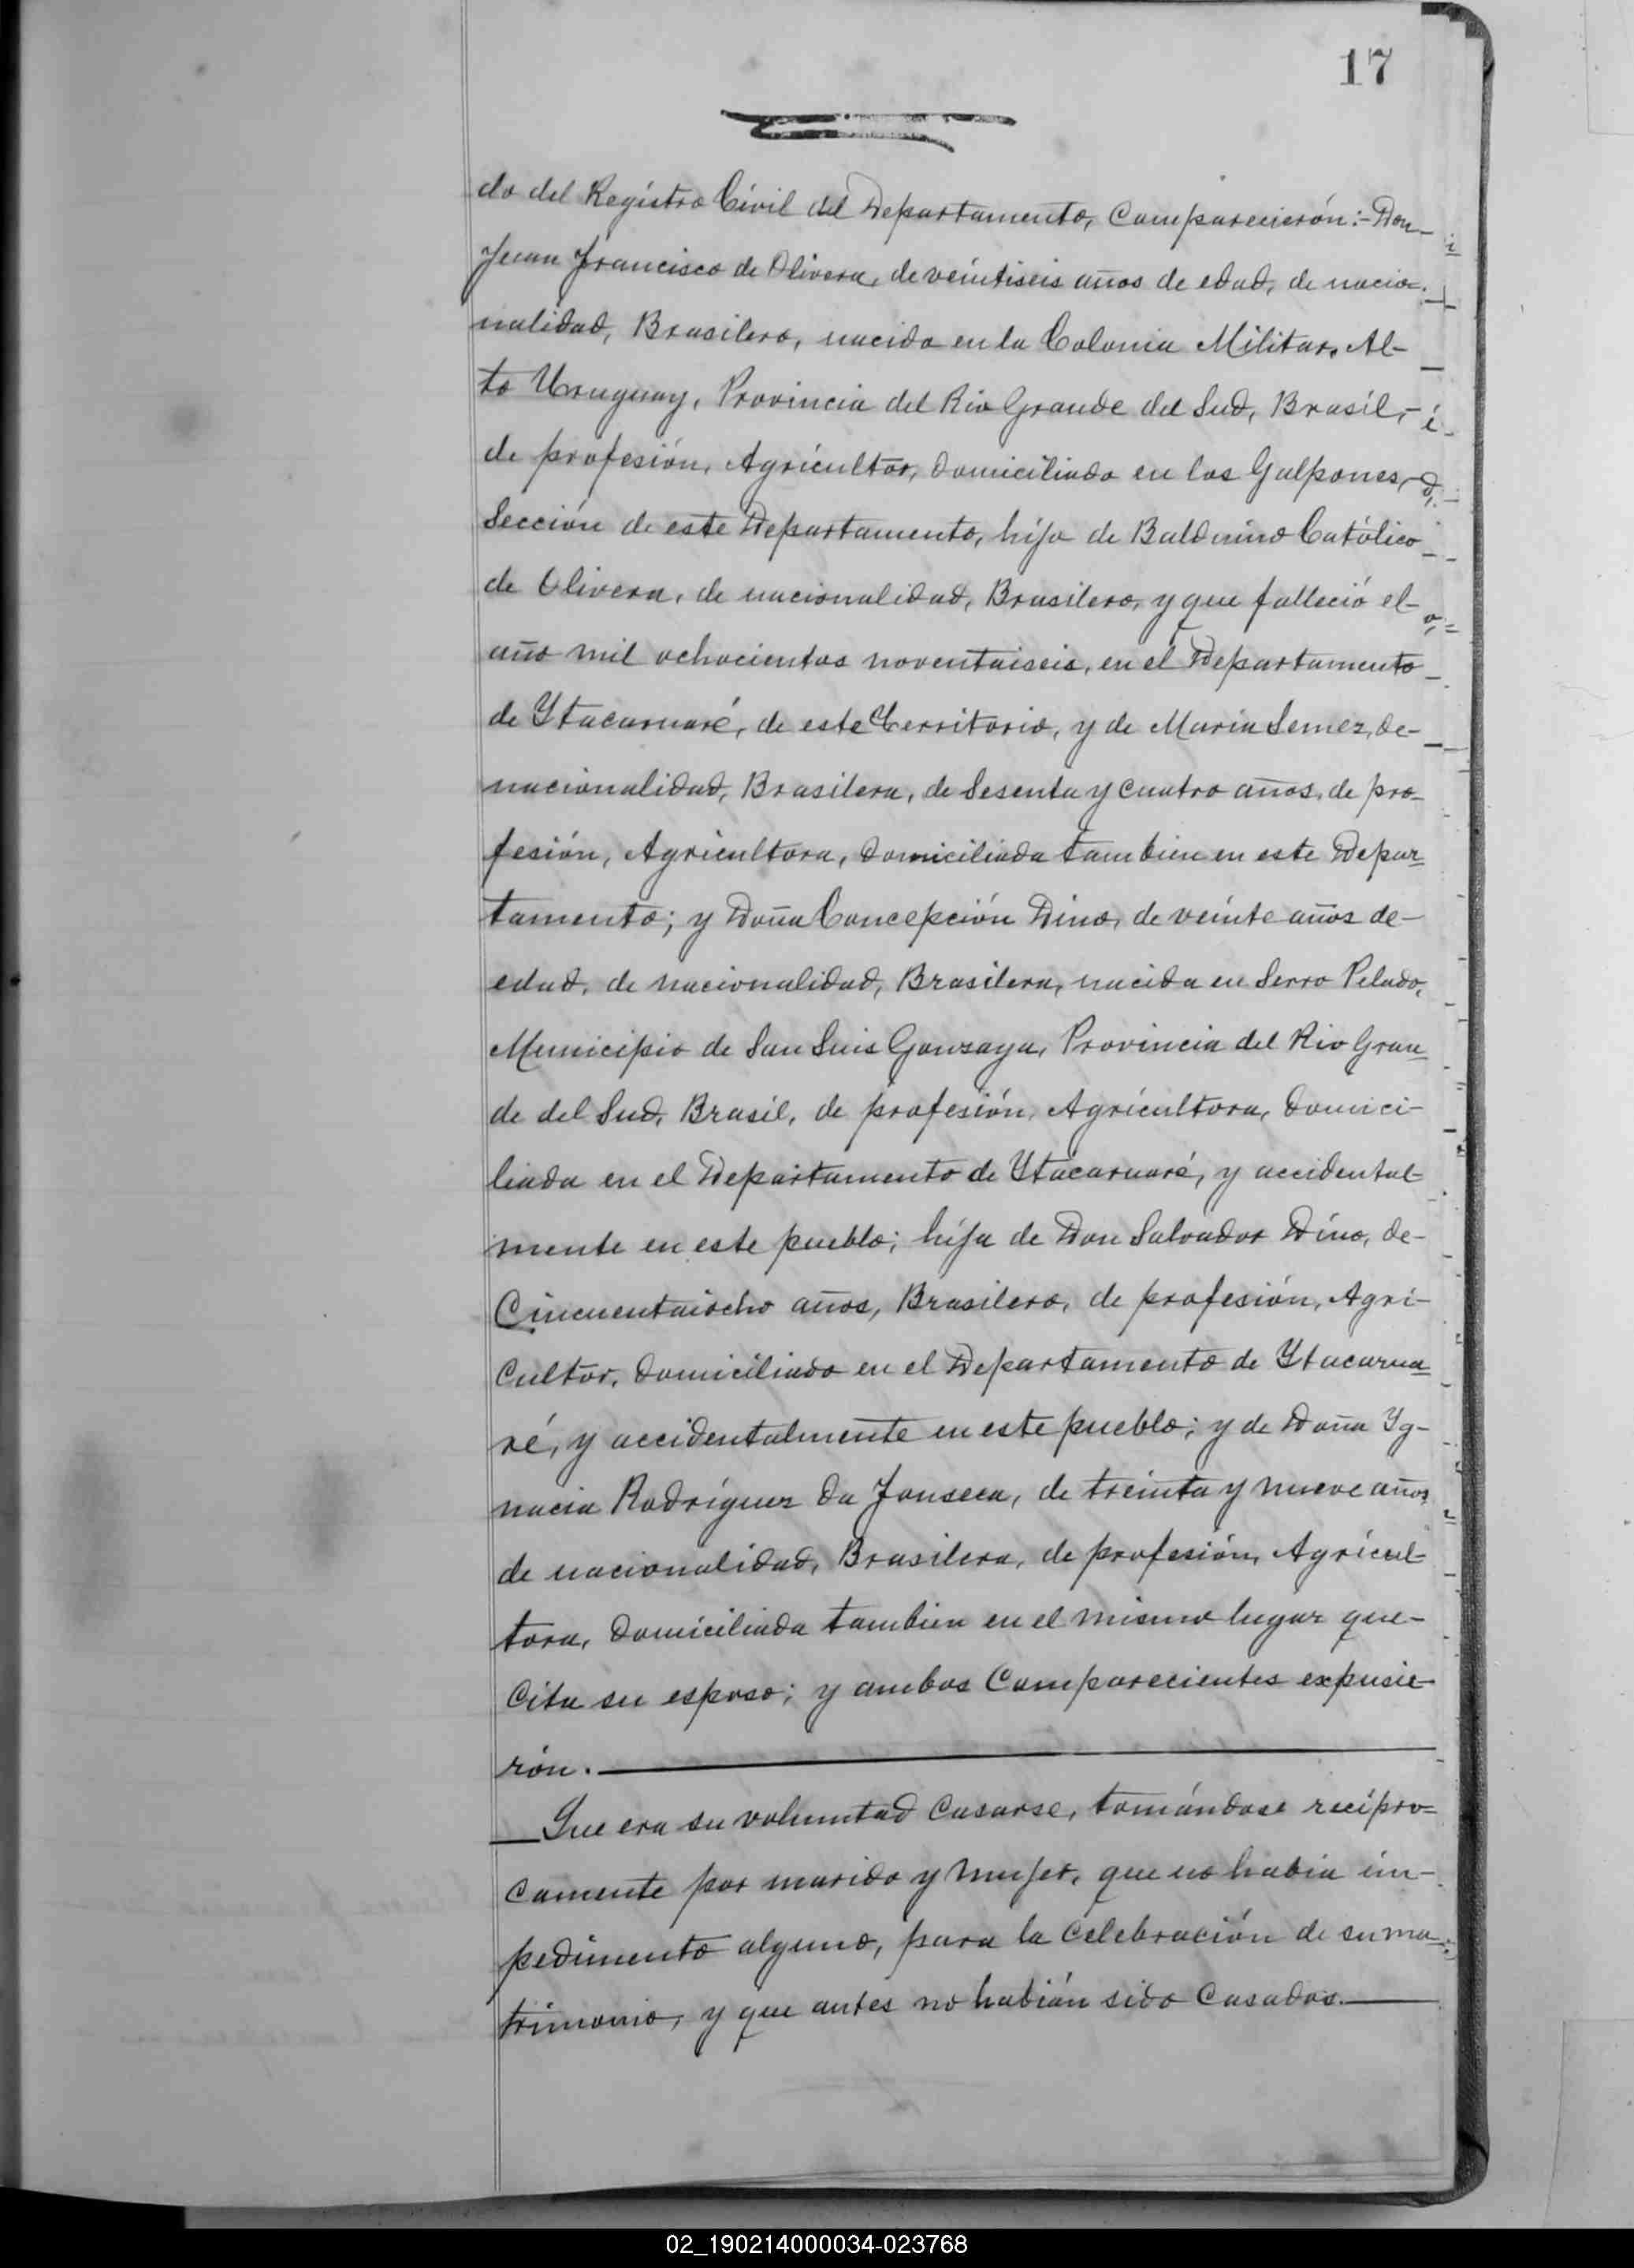 17
do del Regístro Cívil del Departamento, Comparecierón:- Don
Juan Francisco de Olivera, de veíntiseis años de edad, de nacio-
nalidad, Brasilero, nacido en la Colonia Militar, Al-
to Uruguay, Provincia del Rio Grande del Sud, Brasíl,-
de profesión, Agrícultor, domiciliado en los Galpones,-
Sección de este Departamento, hijo de Balduino Católico
de Olivera, de nacionalidad, Brasilero, y que falleció el-
año mil ochocientos noventaiseis, en el Departamento
de Ytacaruaré, de este Territorio, y de Maria Semes, de-
nacionalidad, Brasilera, de Sesenta y Cuatro años, de pro-
fesión, Agricultora, domiciliada tambien en este Depar-
tamento; y Doña Concepción Dino, de veínte años de-
edad, de nacionalidad, Brasilera, nacida en Serro Pelado,
Municipio de San Luis Gonzaga, Provincia del Rio Gran
de del Sud, Brasíl, de profesión, Agrícultora, domici-
liada en el Departamento de Ytacaruaré, y accidental
mente en este pueblo; hija de Don Salvador Díno, de-
Cincuentaiocho años, Brasilero, de profesión, Agri-
Cultor, domiciliado en el Departamento de Ytacarua
ré, y accidentalmente en este pueblo; y de Doña Yg-
nacia Rodríguez da Fonseca, de treínta y nueve años,
de nacionalidad, Brasilera, de profesión, Agrícul-
tora, domiciliada tambien en el mismo lugar que-
Cita su esposo; y ambos Comparecientes expusie-
rón.
Que era su voluntad Casarse, tomándose recípro-
camente por marido y mujer, que no habia im-
pedimento alguno, para la Celebración de su ma-
trimonio, y que antes no habián sido Casados.
02_190214000034-023768